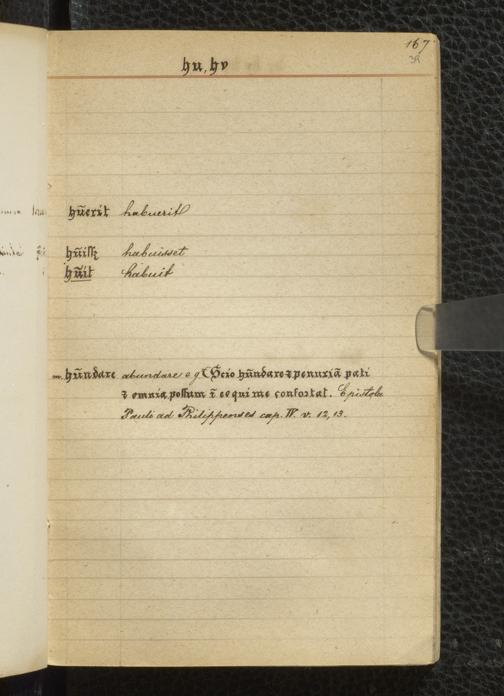 167
38
hu, hv
hūerit habuerit
hūiss3 habuisset
hūit habuit
hūndare abundare e g Scio hūndare ⁊ penuriā pati
⁊ omnia possum ī eo qui me confortat. Epistola
Pauli ad Philippenses cap. IV. v. 12, 13.